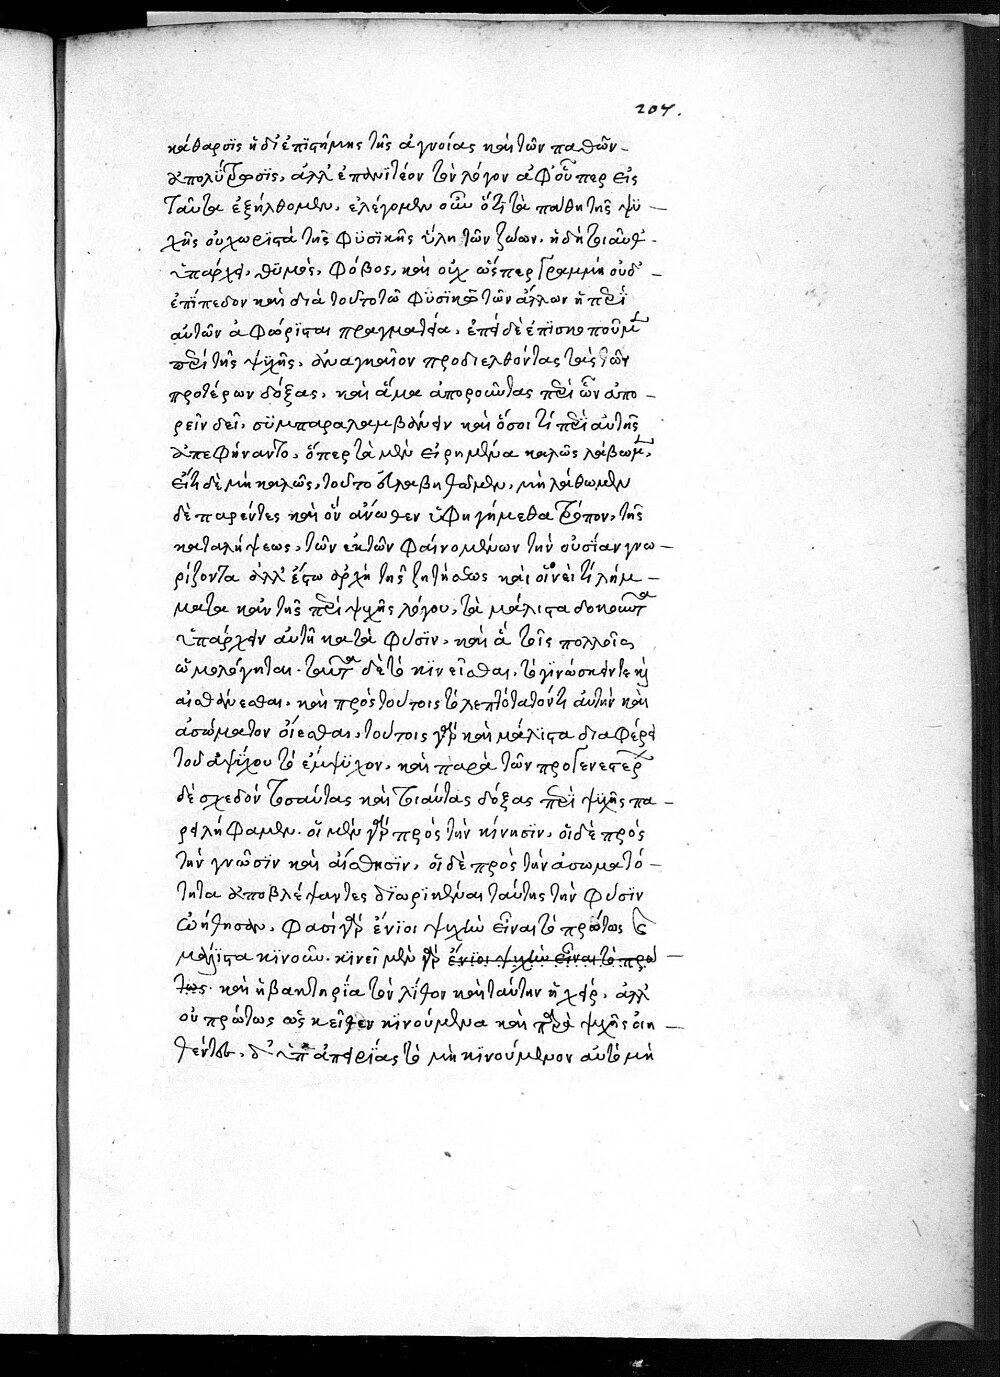 207.
κάθαρσϊς ἡ δι' ἐπϊστήμης τῆς ἀγνοίας καὶ τῶν παθῶν
ἀπολϋτρωσϊς, ἀλλ' ἐπανϊτέον τὸν λόγον ἀφ' οὗπερ εἰς
ταῦτα ἐξήλθομεν. ἐλέγομεν οὖν ὅτι τὰ πάθη τῆς ψϋ-
χῆς οὐ χωρϊστὰ τῆς φϋσϊκῆς ὕλη τῶν ζώων. ᾗ δὴ τοιαῦθ'
ὑπάρχει, θϋμὸς, φόβος, καὶ οὐχ ὥσπερ γραμμὴ οὐδ'
ἐπίπεδον καὶ διὰ τοῦτο τῶ φϋσϊκῶ τῶν ἄλλων ἡ περὶ
αὐτῶν ἀφώρϊσται πραγματεία. ἐπεὶ δὲ ἐπϊσκοποῦμεν
περὶ τῆς ψϋχῆς, ἀναγκαῖον προδιελθόντας τὰς τῶν
προτέρων δόξας, καὶ ἅμα ἀποροῦντας περὶ ὧν ἀπο-
ρεῖν δεῖ, σϋμπαραλαμβάνειν καὶ ὅσοι τί περὶ αὐτῆς
ἀπεφήναντο, ὅπερ τὰ μὲν εἰρημένα καλῶς λάβωμεν,
εἴτι δὲ μὴ καλῶς, τοῦτο εὐλαβηθῶμεν, μὴ λάθωμεν
δὲ παρέντες καὶ ὃν ἄνωθεν ὑφηγήμεθα τρόπον, τῆς
καταλήψεως, τῶν ἐκ τῶν φαινομένων τὴν οὐσίαν γνω-
ρίζοντα ἀλλ' ἔστω ἀρχὴ τῆς ζητήσεως καὶ οἱονεὶ τὶ λῆμ-
ματα κἂν τῆς περὶ ψϋχῆς λόγου, τὰ μάλιστα δοκοῦντα
ὑπάρχειν αὐτῆ κατὰ φύσϊν, καὶ ἃ τοῖς πολλοῖς
ὡμολόγηται. ταῦτα δὲ τὸ κϊνεῖσθαι, τὸ γϊνώσκειν τε καὶ
αἰσθάνεσθαι, καὶ πρὸς τούτοις τὸ λεπτότατόν τι αὐτὴν καὶ
ἀσώματον οἴεσθαι, τούτοις γὰρ καὶ μάλϊστα διαφέρει
τοῦ ἀψύχου τὸ ἔμψϋχον, καὶ παρὰ τῶν προγενεστέρων
δὲ σχεδὸν τοσαύτας καὶ τοιαύτας δόξας περὶ ψϋχῆς πα-
ρειλήφαμεν. οἱ μὲν γὰρ πρὸς τὴν κίνησϊν, οἱ δὲ πρὸς
τὴν γνῶσϊν καὶ αἴσθησϊν, οἱ δὲ πρὸς τὴν ἀσωματό-
τητα ἀποβλέψαντες διωρϊκέναι ταύτης τὴν φύσϊν
ᾠήθησαν. φασὶ γὰρ ἔνϊοι ψϋχὴν εἶναι τὸ πρώτως καὶ
μάλϊστα κϊνοῦν. κϊνεῖ μὲν γὰρ ἔνϊοι ψϋχὴν εἶναι τὸ πρώ-
τως. καὶ ἡ βακτηρία τὸν λίθον καὶ ταύτην ἡ χείρ. ἀλλ'
οὐ πρώτως ὡς κεῖθεν κϊνούμενα καὶ παρὰ ψϋχῆς οἰη-
θέντες, δ' ὑπ' ἀπειρίας τὸ μὴ κϊνούμενον αὐτὸ μὴ